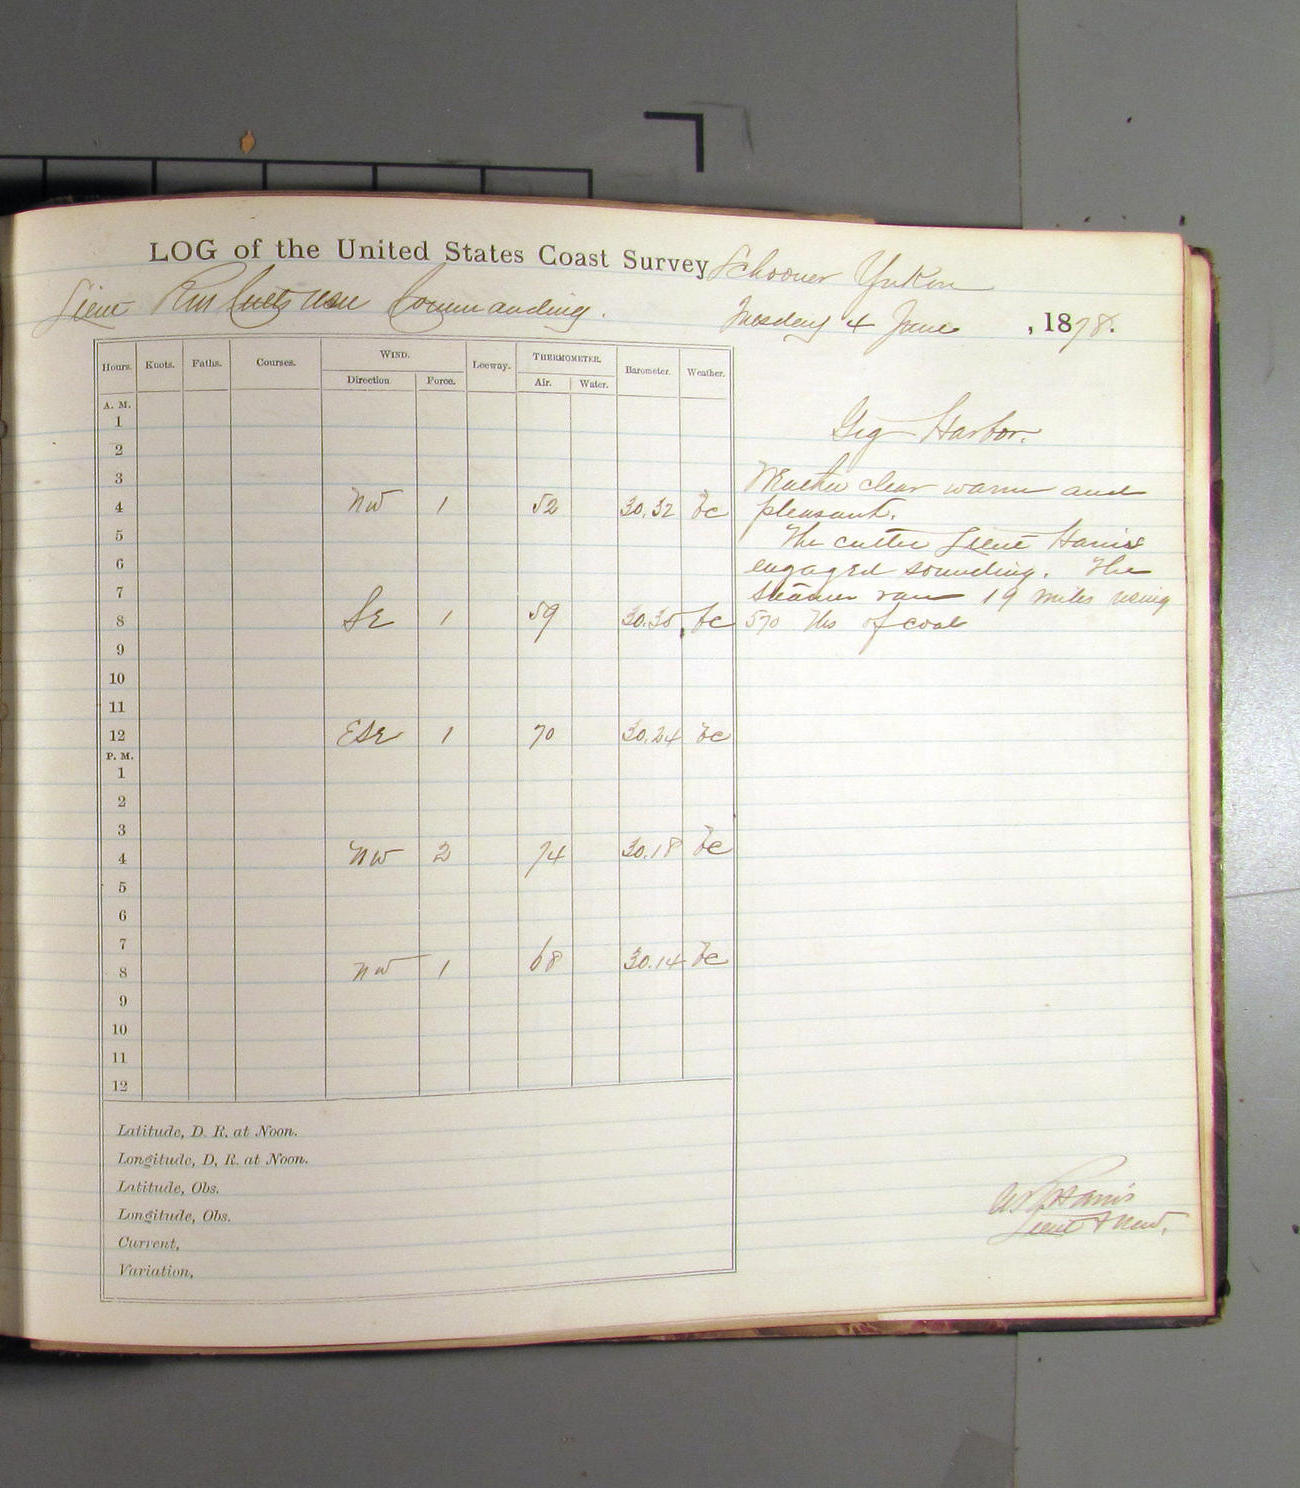 LOG of the United States Coast Survey Schooner Yukon
Lieut Commanding.
Tuesday 4 June , 1878.
Hours. Knots. Faths. Courses. WIND. Leeway. THERMOMETER. Barometer. Weather.
Direction Force. Air. Water.
A. M.
1
2
3
4 NW 1 52 30.32 bc
5
6
7
8 SE 1 59 30.30 bc
9
10
11
12 ESE 1 70 30.24 bc
P. M.
1
2
3
4 NW 2 74 30.18 bc
5
6
7
8 NW 1 68 30.14 bc
9
10
11
12
Latitude, D. R. at Noon.
Longitude, D. R. at Noon.
Latitude, Obs.
Longitude, Obs.
Current,
Variation,
Gig Harbor.
Weather clear warm and
pleasant.
The cutter Lieut Harris
engaged sounding. The
steamer ran 19 miles using
570 lbs of coal
Harris
Lieut